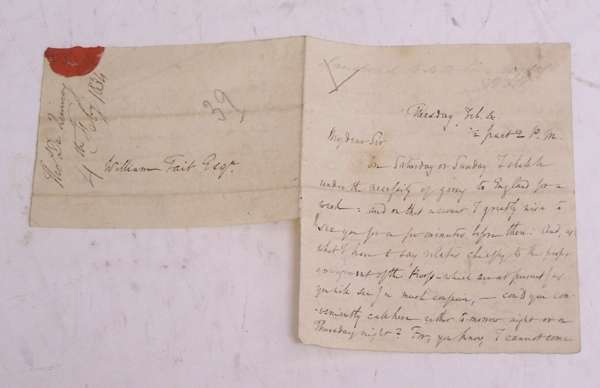 Tho De Quincey
4th Feby 1834
39
William Tait Esqr.
Tuesday Feb. 4
1/2 past 2 P. M.
My dear Sir
On Saturday or Sunday I shall be
under the necessity of going to England for a
week: and on that account I greatly wish to
see you for a few minutes before then: And, as
what I have to say relates chiefly to the proper
arrangement of the Proofs—which are at present (as
you will see) in much confusion,— could you con-
veniently call here either to-morrow night or on
Thursday night? For, you know, I cannot come